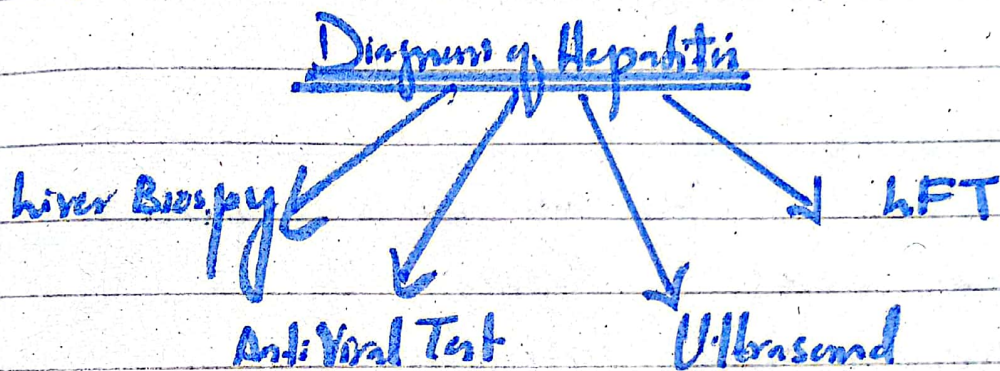 Diagnosis of Hepatitis
Liver Biospy
LFT
Anti Viral Test
Ultrasound